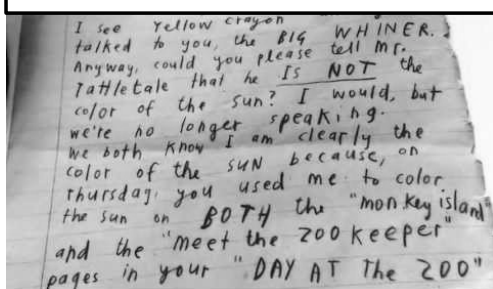 I see Yellow Crayon
talked to you, the BIG WHINER.
Anyway, could you please tell Mr.
Tattletale that he IS NOT the
color of the sun? I would, but
we're no longer speaking.
We both know I am clearly the
color of the SUN because, on
Thursday, you used me to color
the sun on BOTH the "monkey island"
and the "meet the zoo keeper"
pages in your "DAY AT The ZOO"